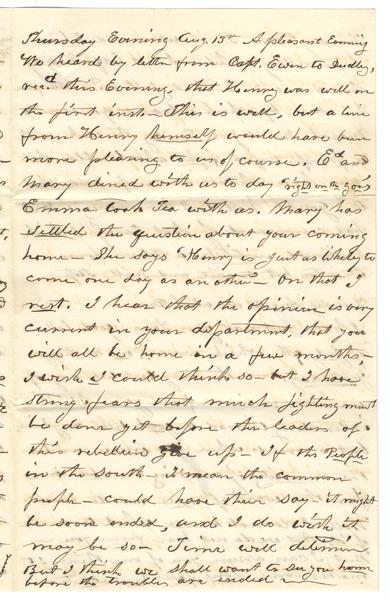 Thursday Evening Aug. 13th A pleasant Evening
We heard by letter from Capt. Ewen to Dudley,
recd this Evening, that Henry was well on
the first inst- This is well, but a line
from Henry himself would have been
more pleasing to us of course. Ed and
Mary dined with us to day "right on the goose"
Emma took Tea with us. Mary has
settled the question about your coming
home- She says "Henry is just as likely to
come one day as another- On that I
rest. I hear that the opinion is very
current in your department, that you
will all be home in a few months-
I wish I could think so- but I have
strong fears that much fighting must
be done yet before the leaders of
this rebellion give up- If the People
in the South- I mean the common
people- could have their say it might
be soon ended, and I do wish it
may be so- Time will determin
But I think we shall want to see you home
before the troubles are ended